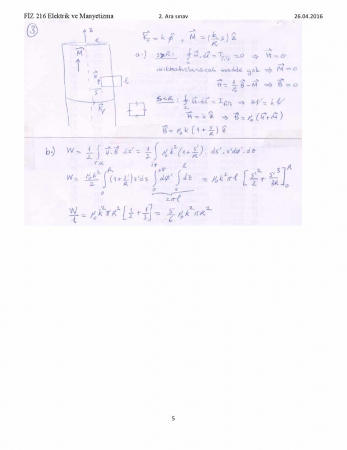 FİZ 216 Elektrik ve Manyetizma 2. Ara sınav 26.04.2016
③
z
K⃗_f = k φ̂ , M⃗ = (k/R s) ẑ
a-) s>R: ∮ H⃗·dl⃗ = I_f = 0 ⇒ H⃗ = 0
madde yok ⇒ M⃗ = 0
H⃗ = 1/μ₀ B⃗ - M⃗ ⇒ B⃗ = 0
s<R: ∮ H⃗·dl⃗ = ⇒ Hl = kl
H⃗ = k ẑ ⇒ B⃗ = μ₀ (H⃗ + M⃗)
B⃗ = μ₀ k (1 + s/R) ẑ
M⃗
l
b-) W = 1/2 ∫ H⃗·B⃗ dτ' = 1/2 ∫ μ₀ k² (1 + s'/R) ds' s'dφ' dz
W = μ₀k²/2 ∫₀^R (1 + s'/R) s'ds' ∫₀^2π dφ' ∫₀^l dz = μ₀ k² π l [s'²/2 + s'³/3R]₀^R
2πl
W/l = μ₀ k² π R² [1/2 + 1/3] = 5/6 μ₀ k² π R²
5